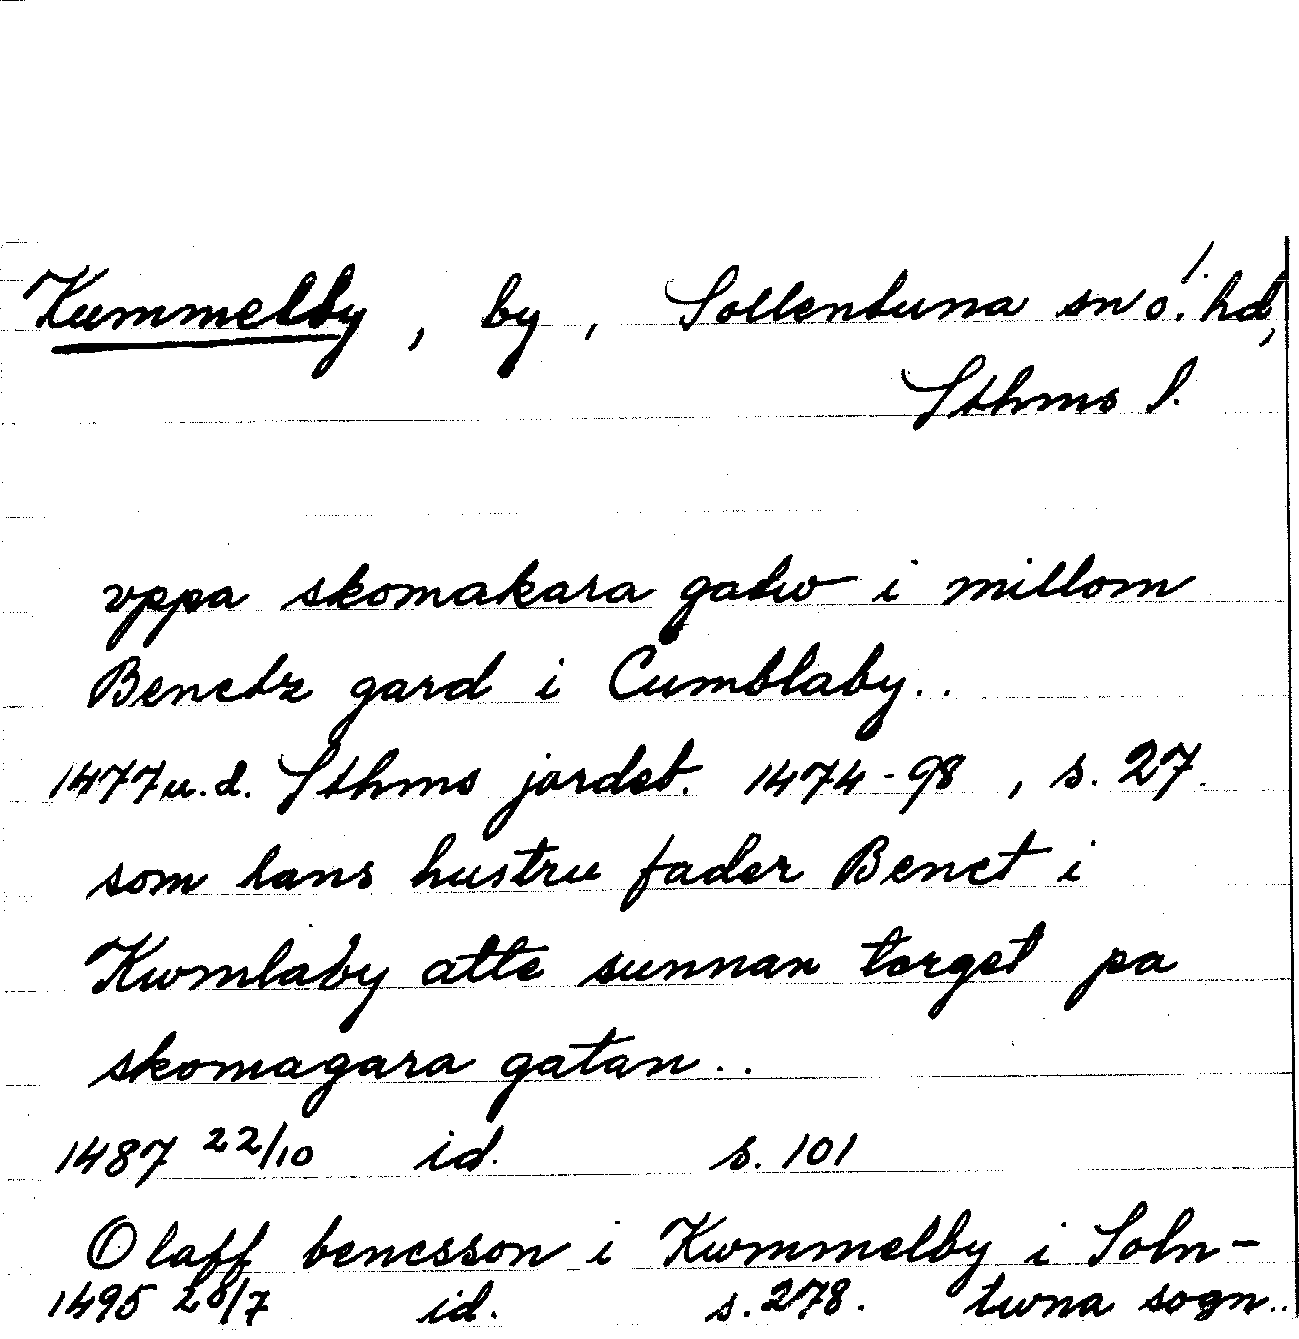 Kummelby, by, Sollentuna sn o. hd,
Sthms l.
vppa skomakara gatw i millom
Benedz gard i Cumblaby..
1477 u.d. Sthms jordeb. 1474-98, s. 27.
som hans hustru fader Benct i
Kwmlaby atte sunnan torget pa
skomagara gatan..
1487 22/10 id. s. 101
Olaff bencsson i Kwmmelby i Soln-
twna sogn..
1495 28/7 id. s. 278.